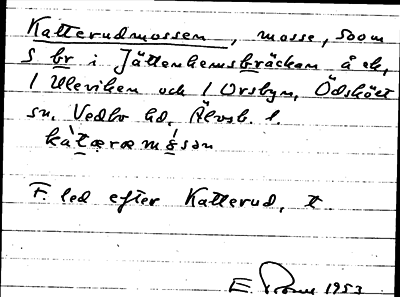 Katterudmossen, mosse, 500 m
S br i Jättenhemsbräckan å ek,
1 Uleviken och 1 Orsbyn, Ödskölt
sn, Vedbo hd, Älvsb. l.
kàtæræmósən
F. led efter Katterud, t.
E. 1953